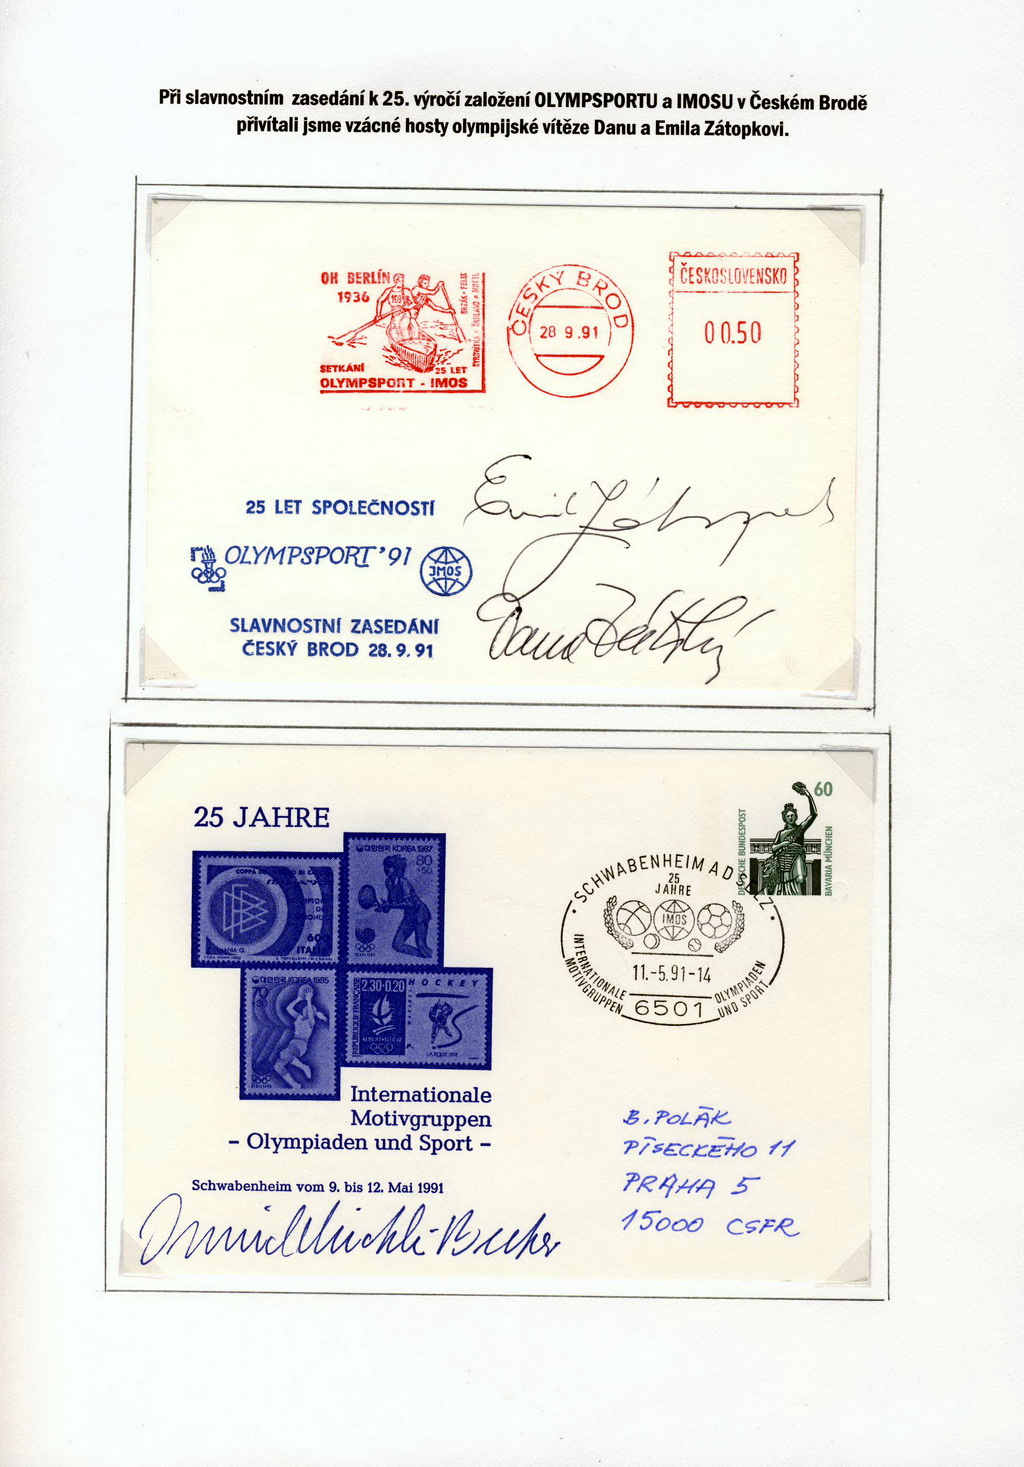 Při slavnostním zasedání k 25. výročí založení OLYMPSPORTU a IMOSU v Českém Brodě
přivítali jsme vzácné hosty olympijské vítěze Danu a Emila Zátopkovi.
OH BERLÍN
1936
SETKÁNÍ
25 LET
OLYMPSPORT - IMOS
ČESKÝ BROD
28 9.91
ČESKOSLOVENSKO
00.50
25 LET SPOLEČNOSTÍ
OLYMPSPORT'91
IMOS
SLAVNOSTNÍ ZASEDÁNÍ
ČESKÝ BROD 28.9.91
Emil Zátopek
Dana Zátopková
25 JAHRE
KOREA 1987
80
+50
60
ITALIA
KOREA 1985
70
2,30+0,20
HOCKEY
REPUBLIQUE FRANÇAISE
ALBERTVILLE 92
Internationale
Motivgruppen
- Olympiaden und Sport -
Schwabenheim vom 9. bis 12. Mai 1991
60
DEUTSCHE BUNDESPOST
BAVARIA MÜNCHEN
SCHWABENHEIM A D SELZ
25
JAHRE
IMOS
11.-5.91-14
INTERNATIONALE
MOTIVGRUPPEN
OLYMPIADEN
UND SPORT
6501
B. POLÁK
PÍSECKÉHO 11
PRAHA 5
15000 CSFR